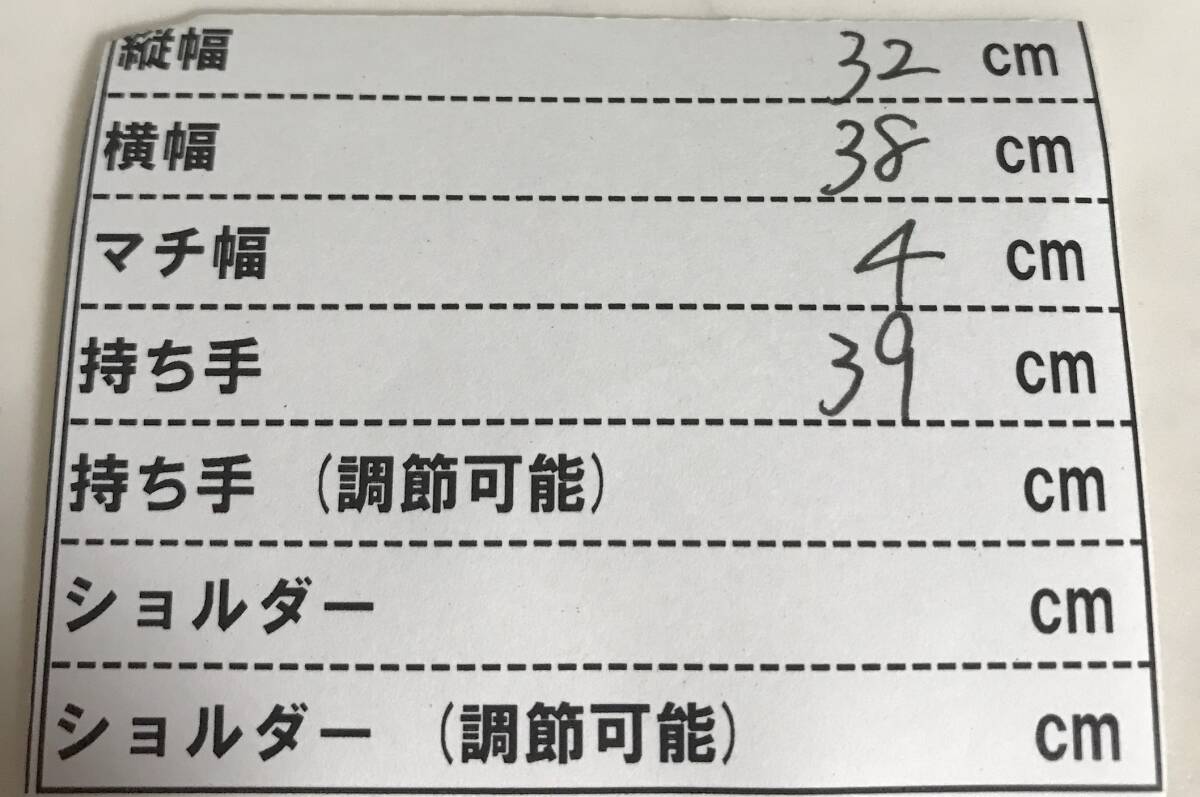 縦幅 32 cm
横幅 38 cm
マチ幅 4 cm
持ち手 39 cm
持ち手 (調節可能) cm
ショルダー cm
ショルダー (調節可能) cm